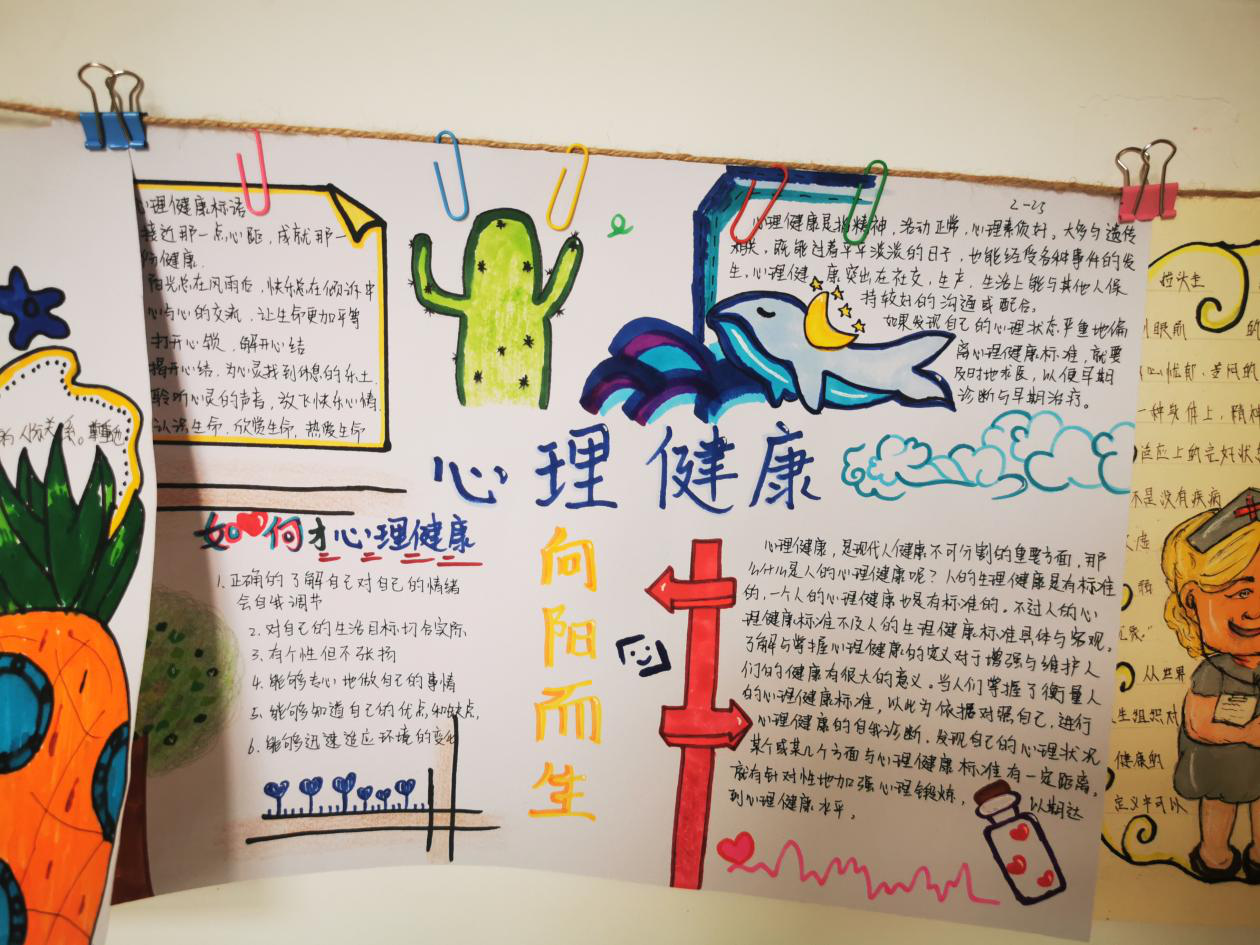 心理健康标语
接近那一点心距，成就那一
份健康.
阳光总在风雨后，快乐总在倾诉中
心与心的交流，让生命更加平等
打开心锁，解开心结
揭开心结，为心灵找到休息的乐土.
聆听心灵的声音，放飞快乐心情
认识生命，欣赏生命，热爱生命
2-23
心理健康是指精神，活动正常，心理素质好。大多与遗传
相关，既能过着平平淡淡的日子，也能经受各种事件的发
生，心理健康突出在社交，生产，生活上能与其他人保
持较好的沟通或配合。
如果发现自己的心理状态严重地偏
离心理健康标准，就要
及时地求医，以便早期
诊断与早期治疗。
心理健康
向
阳
而
生
如何才心理健康
1.正确的了解自己对自己的情绪
会自我调节
2.对自己的生活目标切合实际
3.有个性但不张扬
4.能够专心地做自己的事情
5.能够知道自己的优点和缺点，
6.能够迅速适应环境的变化
心理健康，是现代人健康不可分割的重要方面，那
么什么是人的心理健康呢？人的生理健康是有标准
的，一个人的心理健康也是有标准的。不过人的心
理健康标准不及人的生理健康标准具体与客观。
了解与掌握心理健康的定义对于增强与维护人
们的健康有很大的意义。当人们掌握了衡量人
的心理健康标准，以此为依据对照自己，进行
心理健康的自我诊断，发现自己的心理状况
某个或某几个方面与心理健康标准有一定距离，
就有针对性地加强心理锻炼，以期达
到心理健康水平。
人际关系。
眼前
的
一种
适应上的完好状
不是没有疾病
从世界
生组织对
健康的
定义中可以